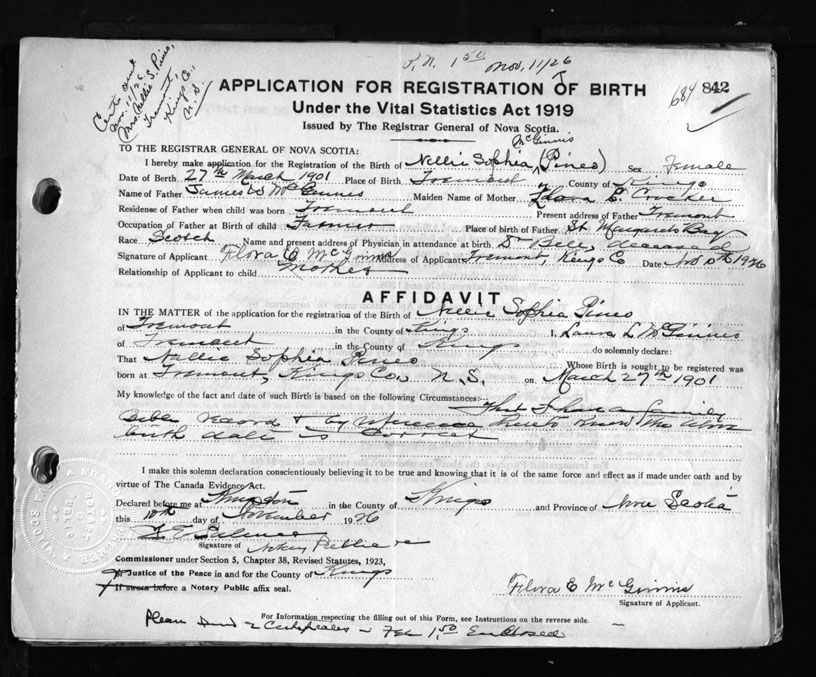 Cert. sent
Nov. 11/26
Mrs. Nellie S. Pineo,
Tremont,
Kings Co.,
N.S.
P.N. 1.50 Nov. 11/26
684 842
APPLICATION FOR REGISTRATION OF BIRTH
Under the Vital Statistics Act 1919
Issued by The Registrar General of Nova Scotia.
TO THE REGISTRAR GENERAL OF NOVA SCOTIA:
McGinnis
I hereby make application for the Registration of the Birth of Nellie Sophia (Pineo) Sex Female
Date of Birth 27th March 1901 Place of Birth Tremont County of Kings
Name of Father James W McGinnis Maiden Name of Mother Flora E. Crocker
Residence of Father when child was born Tremont Present address of Father Tremont
Occupation of Father at Birth of child Farmer Place of birth of Father St. Margarets Bay
Race Scotch Name and present address of Physician in attendance at birth Dr Bell, deceased
Signature of Applicant Flora E McGinnis Address of Applicant Tremont, Kings Co Date Nov 10th 1926
Relationship of Applicant to child Mother
AFFIDAVIT
IN THE MATTER of the application for the registration of the Birth of Nellie Sophia Pineo
of Tremont in the County of Kings I, Laura L McGinnis
of Tremont in the County of Kings do solemnly declare:
That Nellie Sophia Pineo Whose Birth is sought to be registered was
born at Tremont, Kings Co., N.S. on March 27th 1901
My knowledge of the fact and date of such Birth is based on the following Circumstances:— That I have a family
Bible record & by reference thereto know the above
birth date is correct
I make this solemn declaration conscientiously believing it to be true and knowing that it is of the same force and effect as if made under oath and by
virtue of The Canada Evidence Act.
Declared before me at Kingston in the County of Kings and Province of Nova Scotia
this 10th day of November 1926
Signature of Notary Public
Commissioner under Section 5, Chapter 38, Revised Statutes, 1923,
or Justice of the Peace in and for the County of Kings
If sworn before a Notary Public affix seal.
Flora E McGinnis
Signature of Applicant.
For Information respecting the filling out of this Form, see Instructions on the reverse side.
Please send 2 Certificates — Fee 1.50 Enclosed